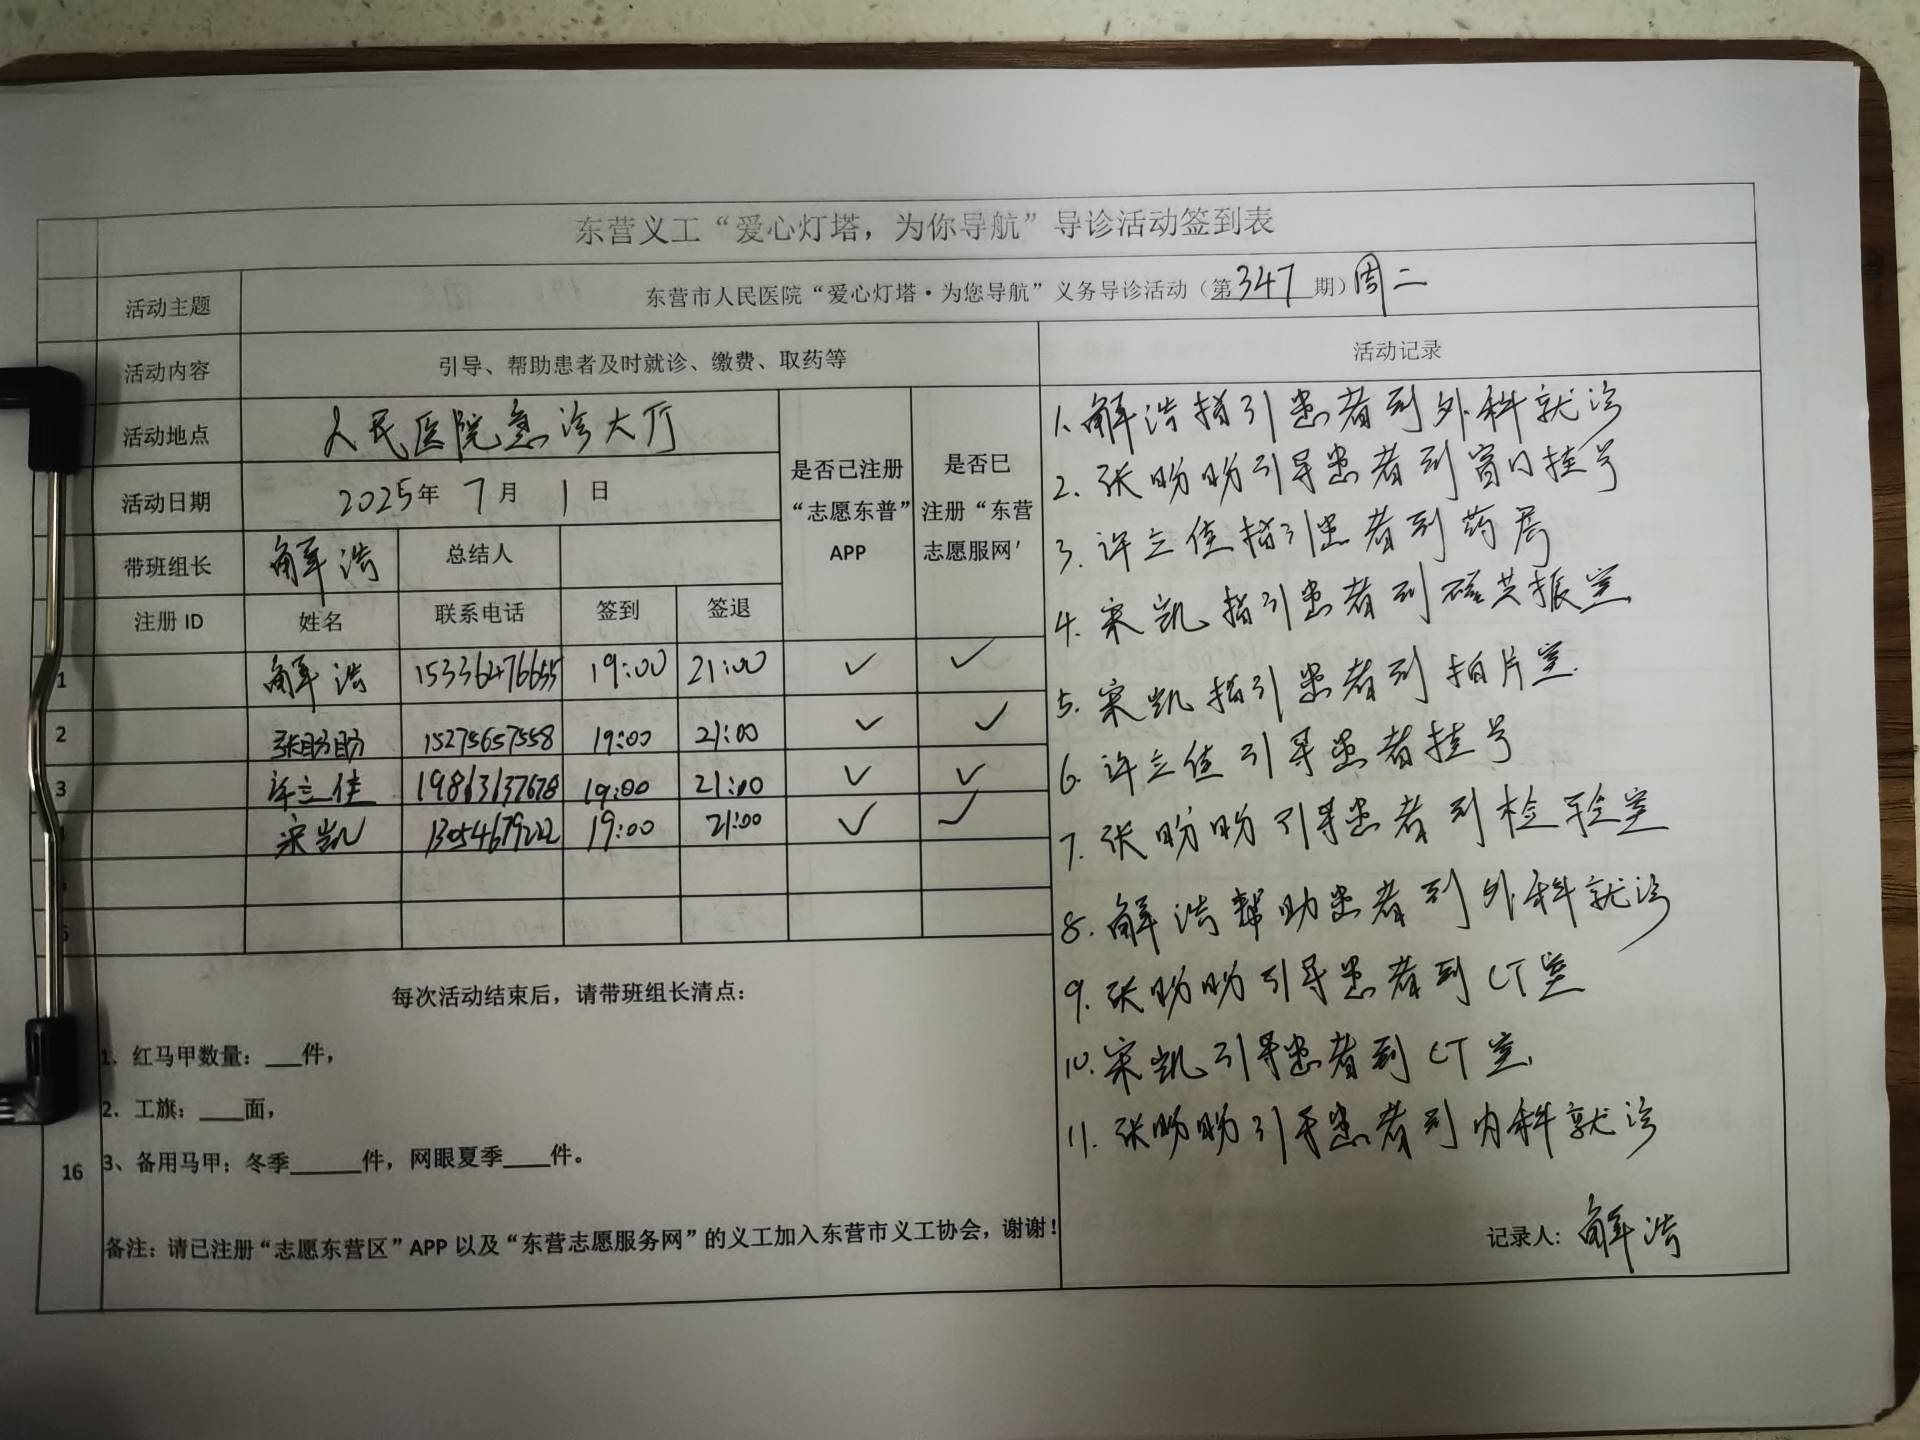 东营义工“爱心灯塔，为你导航”导诊活动签到表
活动主题 东营市人民医院“爱心灯塔·为您导航”义务导诊活动（第347期）周二
活动内容 引导、帮助患者及时就诊、缴费、取药等 活动记录
活动地点 人民医院急诊大厅
活动日期 2025年 7月 1日
是否已注册“志愿东普”APP
是否已注册“东营志愿服网’
带班组长 解浩 总结人
注册 ID 姓名 联系电话 签到 签退
1 解浩 15336476655 19:00 21:00 ✓ ✓
2 张盼盼 15275657558 19:00 21:00 ✓ ✓
3 许立佳 19863137678 19:00 21:00 ✓ ✓
宋凯 13054679222 19:00 21:00 ✓ ✓
1. 解浩指引患者到外科就诊
2. 张盼盼引导患者到窗口挂号
3. 许立佳指引患者到药房
4. 宋凯指引患者到磁共振室
5. 宋凯指引患者到拍片室.
6. 许立佳引导患者挂号
7. 张盼盼引导患者到检验室
8. 解浩帮助患者到外科就诊
9. 张盼盼引导患者到CT室
10. 宋凯引导患者到CT室.
11. 张盼盼引导患者到内科就诊
记录人: 解浩
每次活动结束后，请带班组长清点：
1、红马甲数量：___件，
2、工旗：____面，
16 3、备用马甲：冬季______件，网眼夏季____件。
备注：请已注册“志愿东营区”APP 以及“东营志愿服务网”的义工加入东营市义工协会，谢谢！